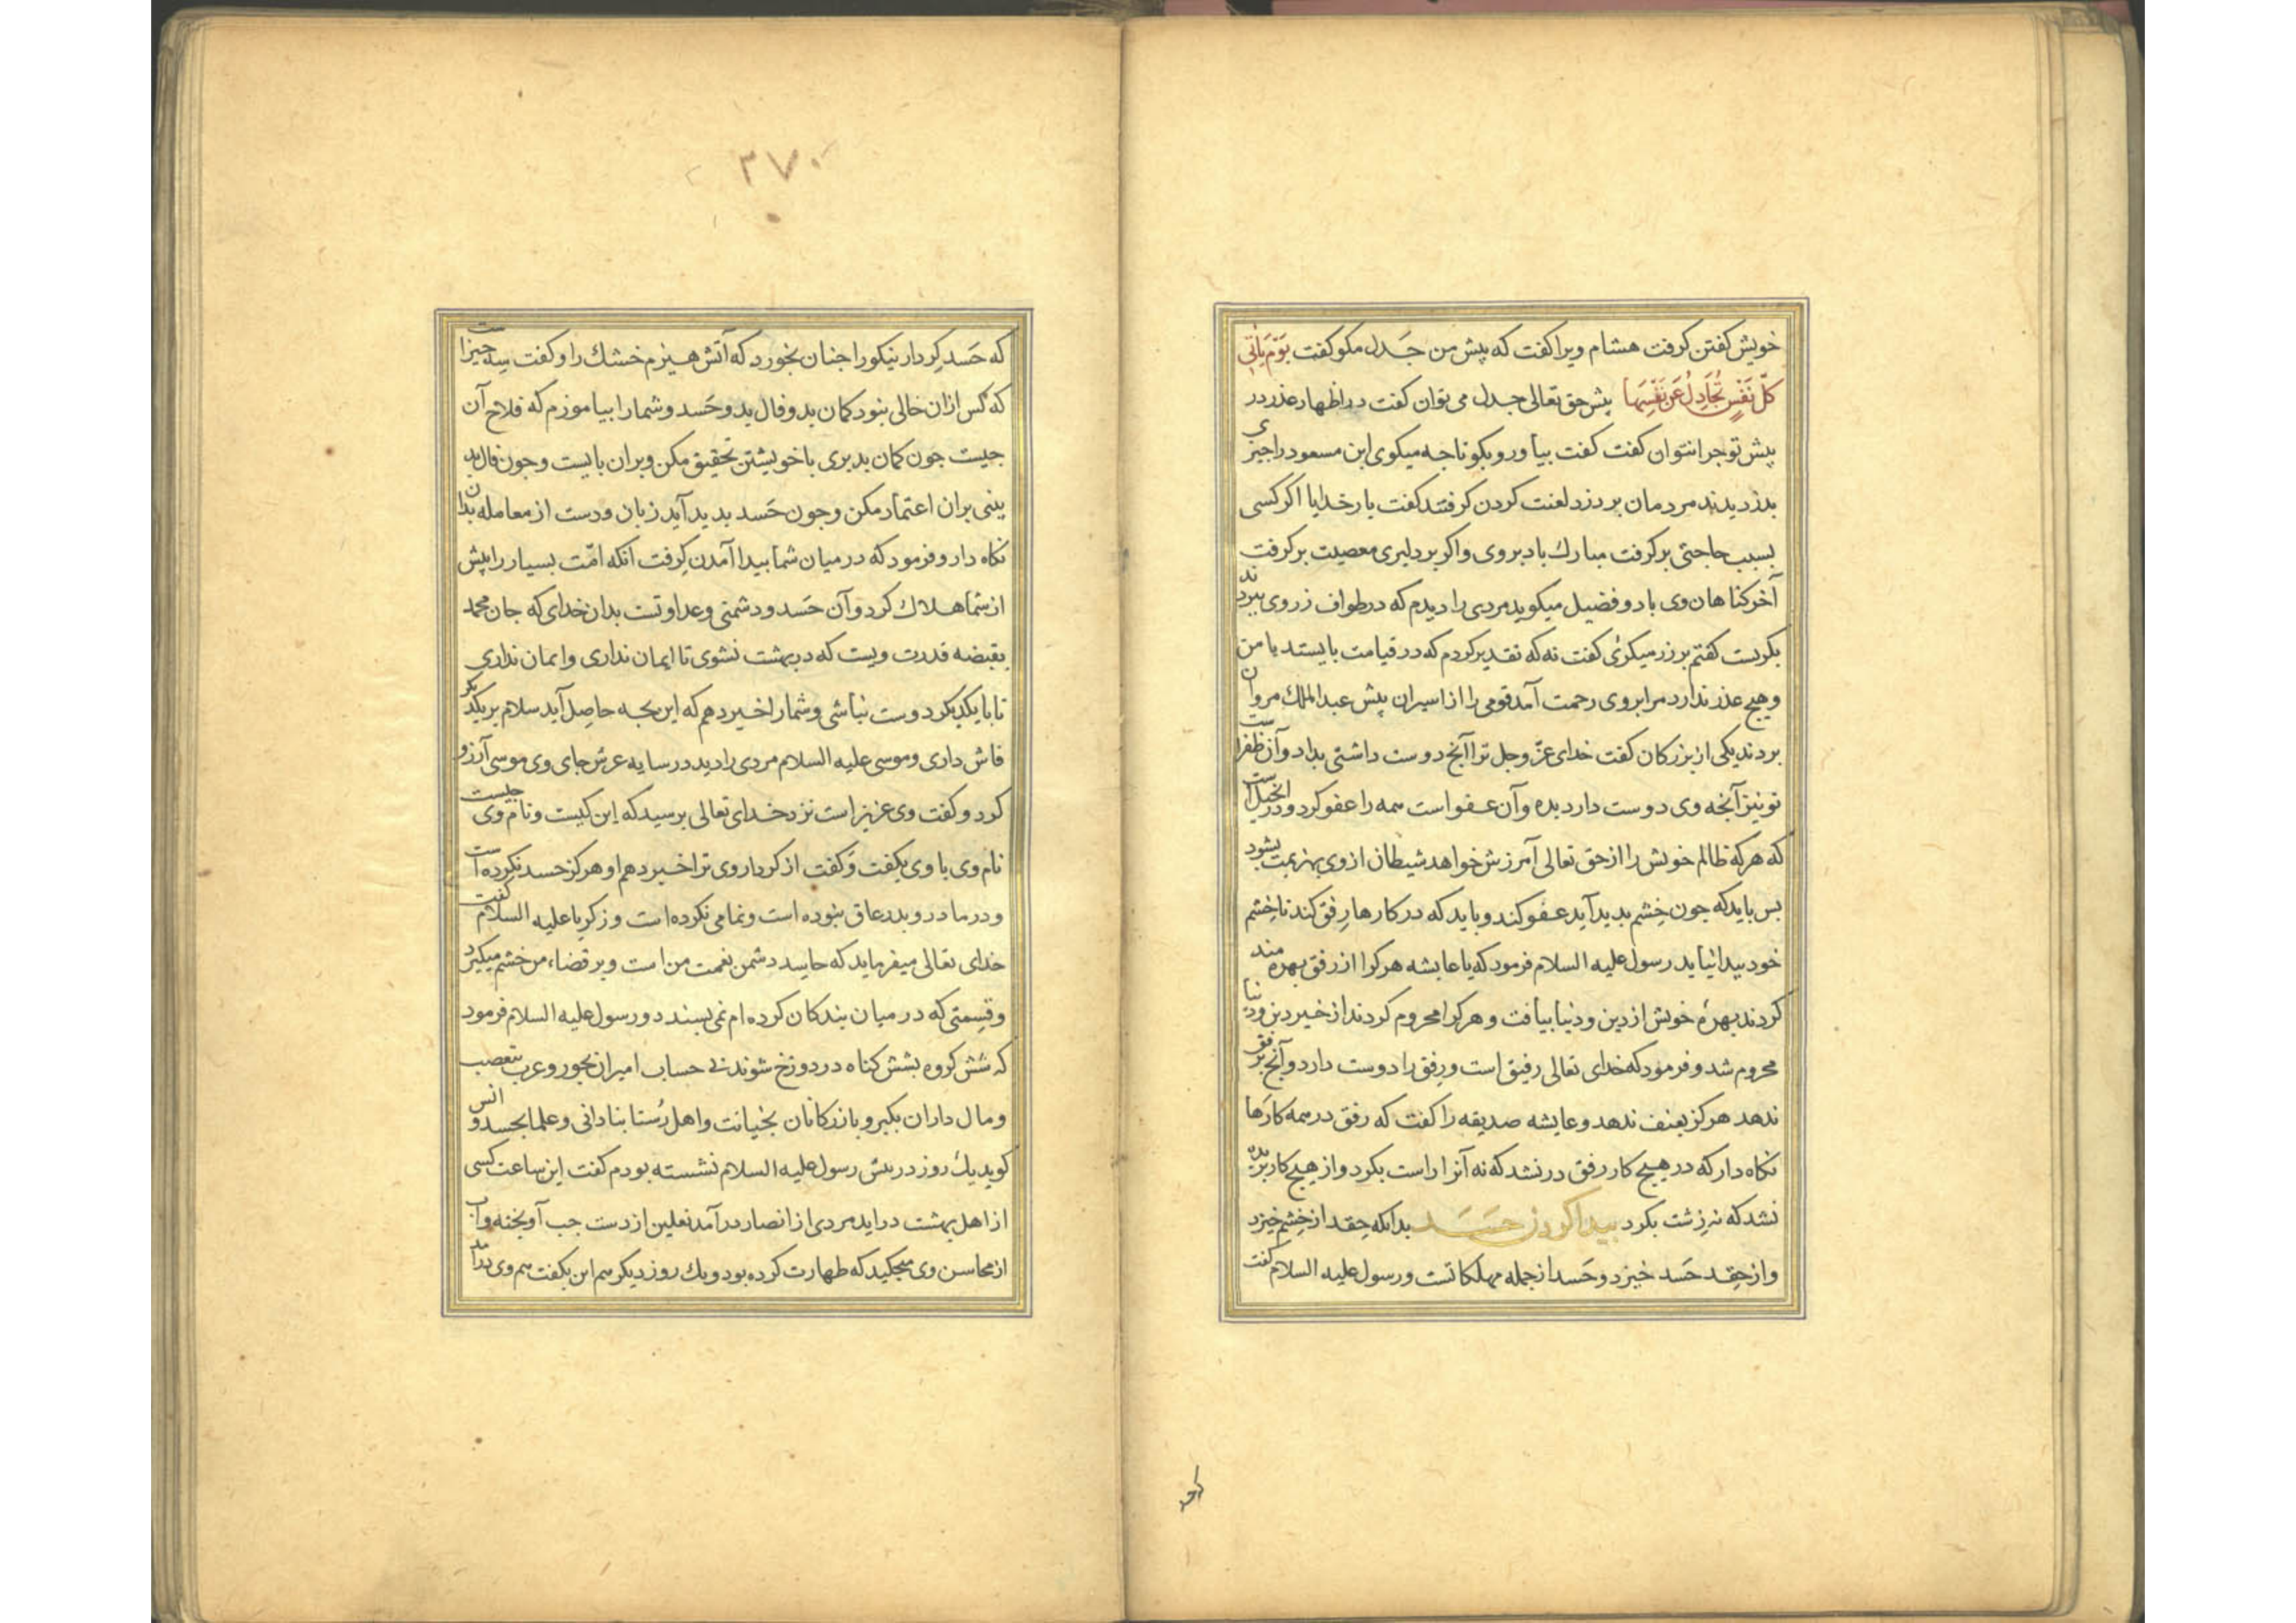 خویش گفتن گرفت هشام ویرا گفت که پیش من جَدل مکو گفت یَوْمَ یَأتی
کلّ نَفْسٍ تُجَادِلُ عَنْ نَفْسِهَا پیش حق تعالی جدل می توان گفت در اظهار عذر در
پیش تو جرا نتوان گفت گفت بیا ور و بکو تا جه میکوی ابن مسعود را جیزی
بدزدیدند مردمان بر دزد لعنت کردن گرفتند گفت بار خدایا اگر کسی
بسبب حاجتی برگرفت مبارك باد بروی و اگر بر دلیری معصیت برگرفت
آخر کناهان وی باد و فضیل میکوید مردی را دیدم که در طواف زر وی ببردند
بکریست گفتم بر زر میکرئی گفت نه که تقدیر کردم که در قیامت بایستد با من
و هیج عذر ندارد مرا بروی رحمت آمد قومی را از اسیران پیش عبد الملك مروان
بردند یکی از بزرکان گفت خدای عزّ و جل ترا آنج دوست داشتی بداد و آن ظفرست
تو نیز آنجه وی دوست دارد بده و آن عفو است همه را عفو کرد و در انجیل است
که هر که ظالم خویش را از حق تعالی آمرزش خواهد شیطان از وی بهزیمت بشود
بس باید که جون خِشم بدید آید عفو کند و باید که در کارها رِفق کند تا خِشم
خود بیدا نیاید رسول علیه السلام فرمود که یا عایشه هر کرا از رفق بهره مند
کردند بهرهٔ خویش از دین و دنیا بیافت و هر کرا محروم کردند از خیر دین و دنیا
محروم شد و فرمود که خدای تعالی رفیق است و رِفق را دوست دارد و آنج برفق
ندهد هرکز بعنف ندهد و عایشه صدیقه را گفت که رفق در همه کارها
نکاه دار که در هیج کار رفق در نشد که نه آنرا راست بکرد و از هیج کار بریده
نشد که نه زشت بکرد بیدا کردن حَسَد بدانکه حِقد از خِشم خیزد
و از حِقد حَسد خیزد و حَسد از جمله مهلکاتست و رسول علیه السلام گفت
که حَسد
۳۷۰
که حَسد کِردار نیکو را جنان بخورد که آتش هیزم خشك را و گفت سِه جیزاست
که کس از ان خالی نبود کمان بد و فال بد و حَسد و شما را بیاموزم که فلاح آن
جیست جون کمان بد بری با خویشتن تحقیق مکن و بران بایست و جون فال بد
بینی بران اعتماد مکن و جون حَسد بدید آید زبان و دست از معامله بدان
نکاه دار و فرمود که در میان شما بیدا آمدن گِرفت آنکه امّت بسیار را پیش
از شما هلاك کرد و آن حَسد و دشمنی و عداوتست بدان خدای که جان محمد
بقبضه قدرت ویست که در بهشت نشوی تا ایمان نداری و ایمان نداری
تا با یکدیکر دوست نباشی و شما را خبر دهم که این بجه حاصِل آید سلام بر یکدیکر
فاش داری و موسی علیه السلام مردی را دید در سایه عرش جای وی موسی آرزو
کرد و گفت وی عزیز است نزد خدای تعالی برسید که این کیست و نام وی جیست
نام وی با وی بکفت و گفت از کردار وی ترا خبر دهم او هرکز حسد نکرده است
و در مادر و بدر عاق نبوده است و نمامی نکرده است و زکریا علیه السلام گفت
خدای تعالی میفرماید که حاسد دشمن نعمت من است و بر قضاء من خشم میکیرد
و قِسمتی که در میان بندکان کرده ام نمی بسندد و رسول علیه السلام فرمود
که شش کروه بشش کناه در دوزخ شوند بی حساب امیران بجور و عرب بتعصب
و مال داران بکبر و بازرکانان بخیانت و اهل رُستا بنادانی و علما بحسد و انس
کوید یك روز در پیش رسول علیه السلام نشسته بودم گفت این ساعت کسی
از اهل بهشت در اید مردی از انصار در آمد نعلین از دست جب آویخته و آب
از محاسن وی میجکید که طهارت کرده بود و یك روز دیکر هم این بکفت هم وی در آمد